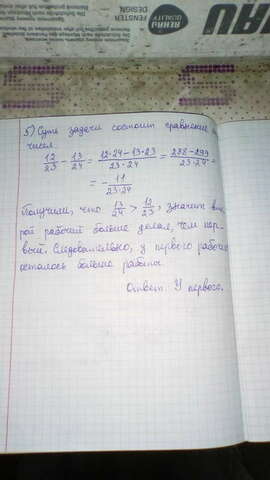 FENSTER
DESIGN.
REHAU
QUALITY
5) Суть задачи состоит сравнение
чисел.
12/23 - 13/24 = 12·24-13·23/23·24 = 288-299/23·24 =
= - 11/23·24
Получим, что 13/24 > 12/23, значит вто-
рой рабочий больше делал, чем пер-
вый. Следовательно, у первого рабочего
осталось больше работы.
Ответ. У первого.